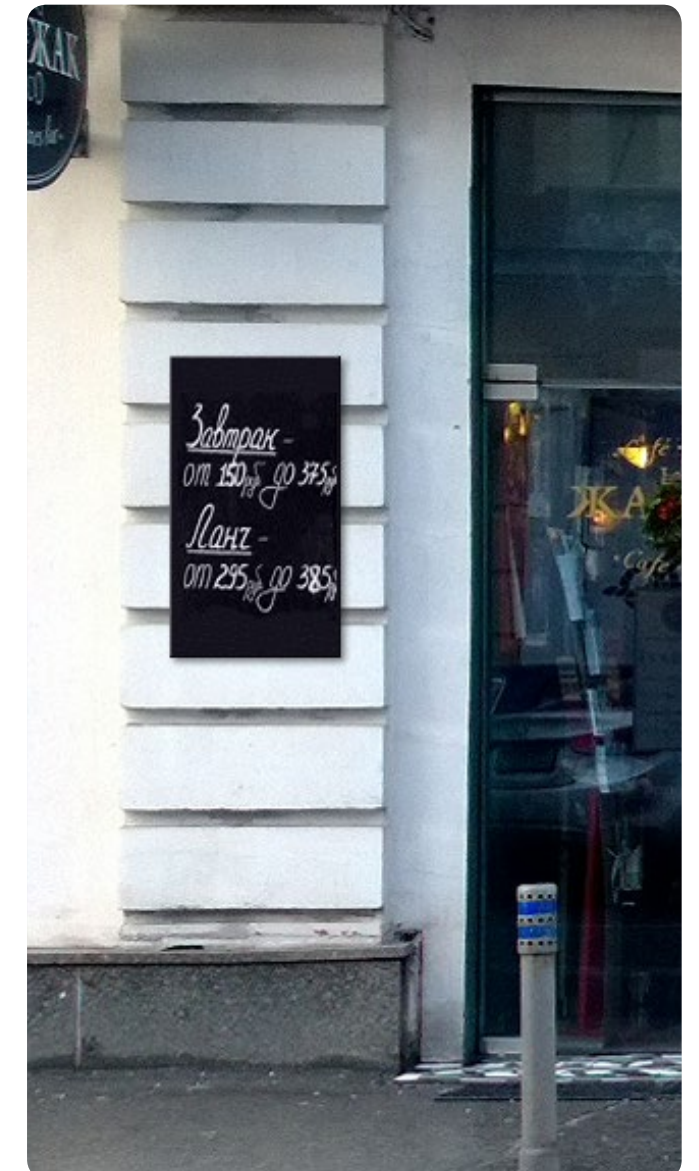 ЖАК
Завтрак -
от 150 руб до 375 руб
Ланч -
от 295 руб до 385 р
Café
ЖА
Café